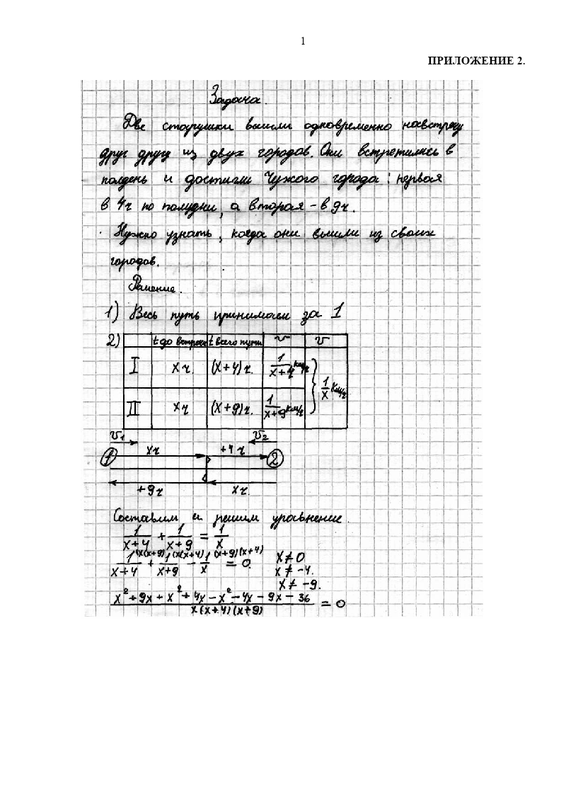 1
ПРИЛОЖЕНИЕ 2.
Задача.
Две старушки вышли одновременно навстречу
друг другу из двух городов. Они встретились в
полдень и достигли Чужого города: первая
в 4ч по полудни, а вторая – в 9ч.
Нужно узнать, когда они вышли из своих
городов.
Решение.
1) Весь путь принимаем за 1
2) t до встречи t всего пути v v
I x ч. (x+4) ч. 1/(x+4) км/ч
1/x км/ч
II x ч (x+9) ч. 1/(x+9) км/ч
v1 v2
1 xч +4ч 2
+9ч xч.
Составим и решим уравнение.
1/(x+4) + 1/(x+9) = 1/x
1/(x+4) + 1/(x+9) - 1/x = 0. x ≠ 0
x ≠ -4.
x ≠ -9.
(x²+9x+x²+4x-x²-4x-9x-36)/(x(x+4)(x+9)) = 0